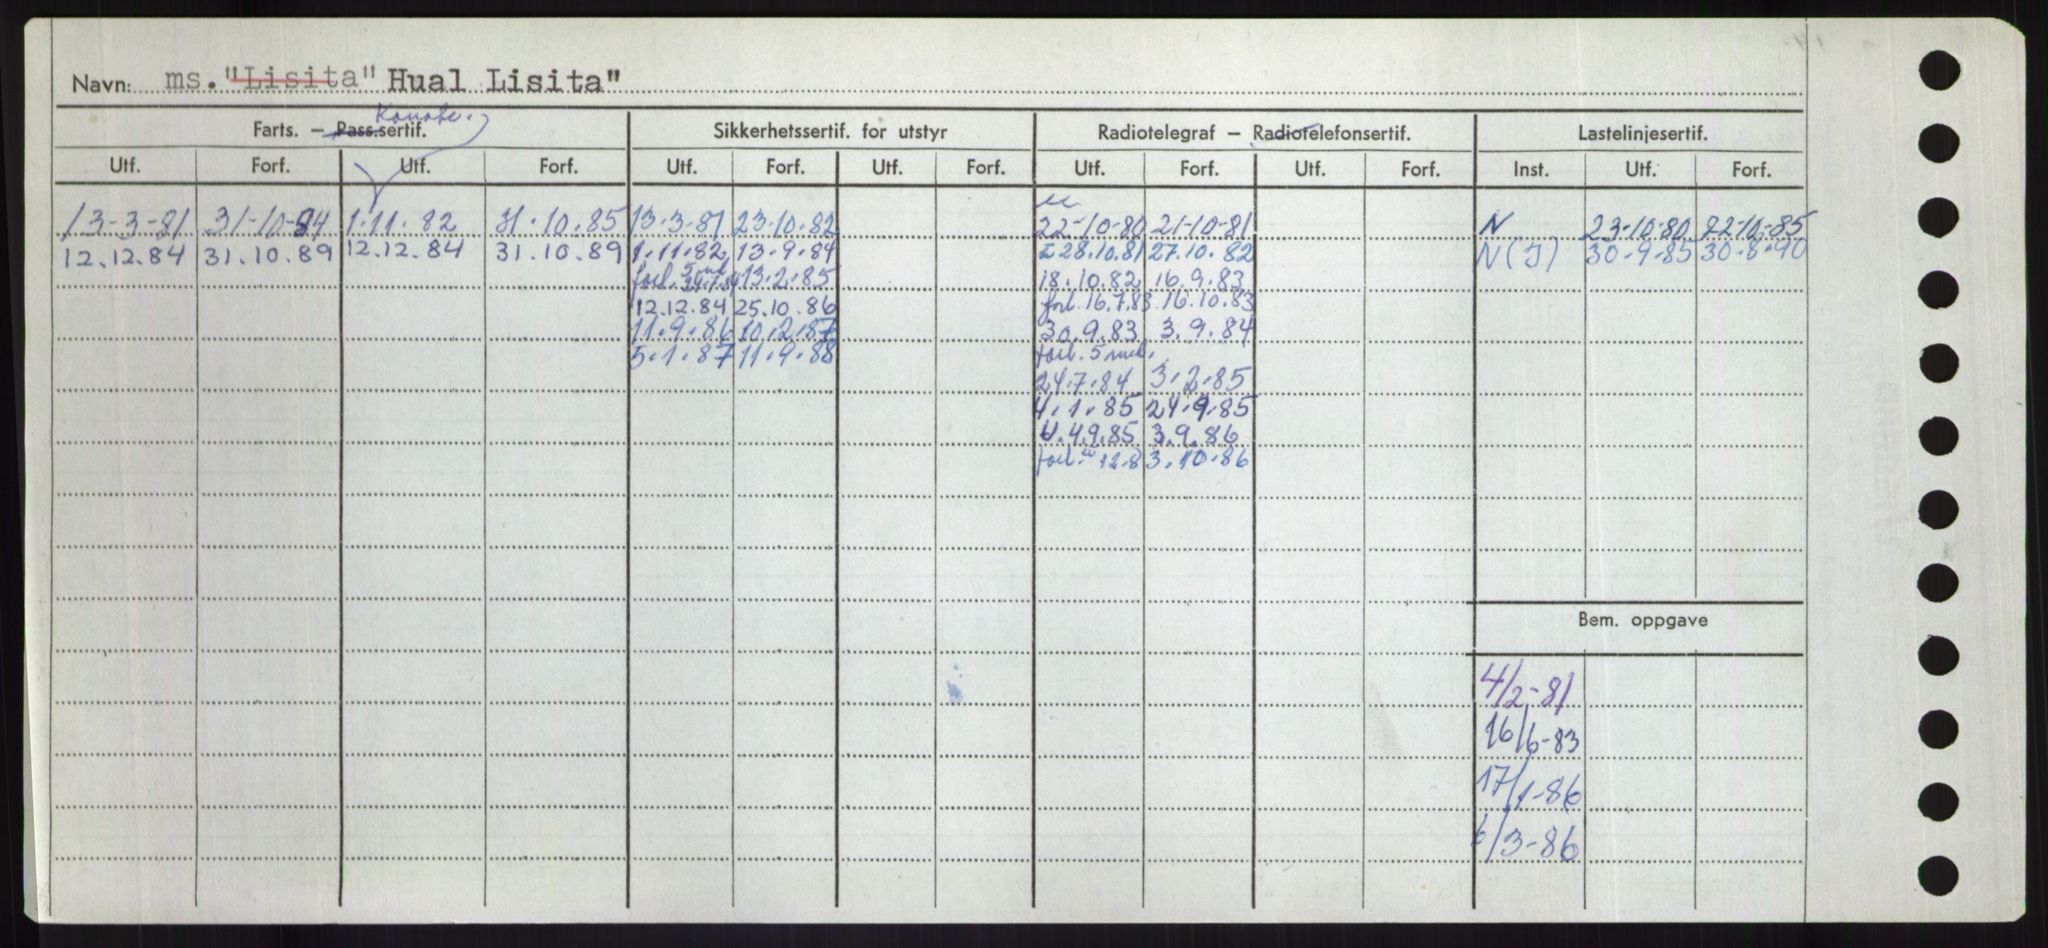 Navn: ms. "Lisita" Hual Lisita"
Konstr.
Farts. – Pass.sertif. Sikkerhetssertif. for utstyr Radiotelegraf – Radiotelefonsertif. Lastelinjesertif.
Utf. Forf. Utf. Forf. Utf. Forf. Utf. Forf. Utf. Forf. Utf. Forf. Inst. Utf. Forf.
13-3-81 31-10-84 1.11.82 31.10.85 13.3.81 23.10.82 22-10-80 21-10-81 N 23.10.80 22.10.85
12.12.84 31.10.89 12.12.84 31.10.89 1.11.82 13.9.84 28.10.81 27.10.82 N(I) 30-9-85 30.8.90
forl. 5 md. 24.7.84 13.2.85 18.10.82 16.9.83
12.12.84 25.10.86 forl. 16.7.83 16.10.83
11.9.86 10.2.87 30.9.83 3.9.84
5.1.87 11.9.88 forl. 5 md.
24.7.84 3.2.85
4.1.85 24.9.85
4.9.85 3.9.86
forl. 12.8 3.10.86
Bem. oppgave
4/2-81
16/6-83
17/1-86
6/3-86